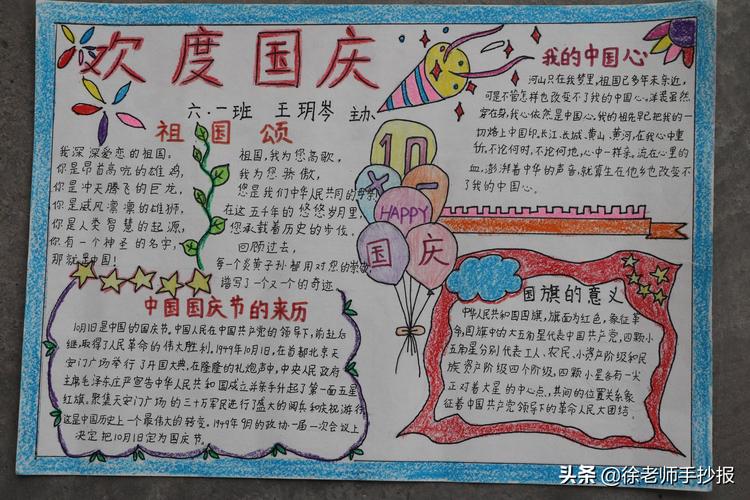 欢度国庆
六.一班 王玥岑 主办
祖国颂
我深深爱恋的祖国。
你是昂首高吭的雄鸡,
你是冲天腾飞的巨龙,
你是威风凛凛的雄狮,
你是人类智慧的起源,
你有一个神圣的名字,
那就是中国!
祖国,我为您高歌,
我为您骄傲,
您是我们中华人民共同的母亲
在这五千年的悠悠岁月里,
您承载着历史的步伐。
回顾过去,
每一个炎黄子孙都用对您的崇敬,
谱写了一个又一个的奇迹
我的中国心
河山只在我梦里,祖国已多年未亲近,
可是不管怎样也改变不了我的中国心。洋装虽然
穿在身,我心依然是中国心。我的祖先早已把我的一
切烙上中国印。长江、长城、黄山、黄河,在我心中重
千斤,不论何时,不论何地,心中一样亲。流在心里的
血,澎湃着中华的声音,就算生在他乡也改变不
了我的中国心。
10
×一
HAPPY
国庆
中国国庆节的来历
10月1日是中国的国庆节。中国人民在中国共产党的领导下,前赴后
继,取得了人民革命的伟大胜利。1949年10月1日,在首都北京天
安门广场举行了开国大典,在隆隆的礼炮声中,中央人民政府
主席毛泽东庄严宣告中华人民共和国成立并亲手升起了第一面五星
红旗。聚集天安门广场的三十万军民进行了盛大的阅兵和庆祝游行
这是中国历史上一个最伟大的转变。1949年9月的政协一届一次会议上
决定把10月1日定为国庆节。
国旗的意义
中华人民共和国国旗,旗面为红色,象征革
命,国旗中的大五角星代表中国共产党,四颗小
五角星分别代表工人、农民、小资产阶级和民
族资产阶级四个阶级,四颗小星各有一尖
正对着大星的中心点,其间的位置关系象
征着中国共产党领导下的革命人民大团结。
头条 @徐老师手抄报